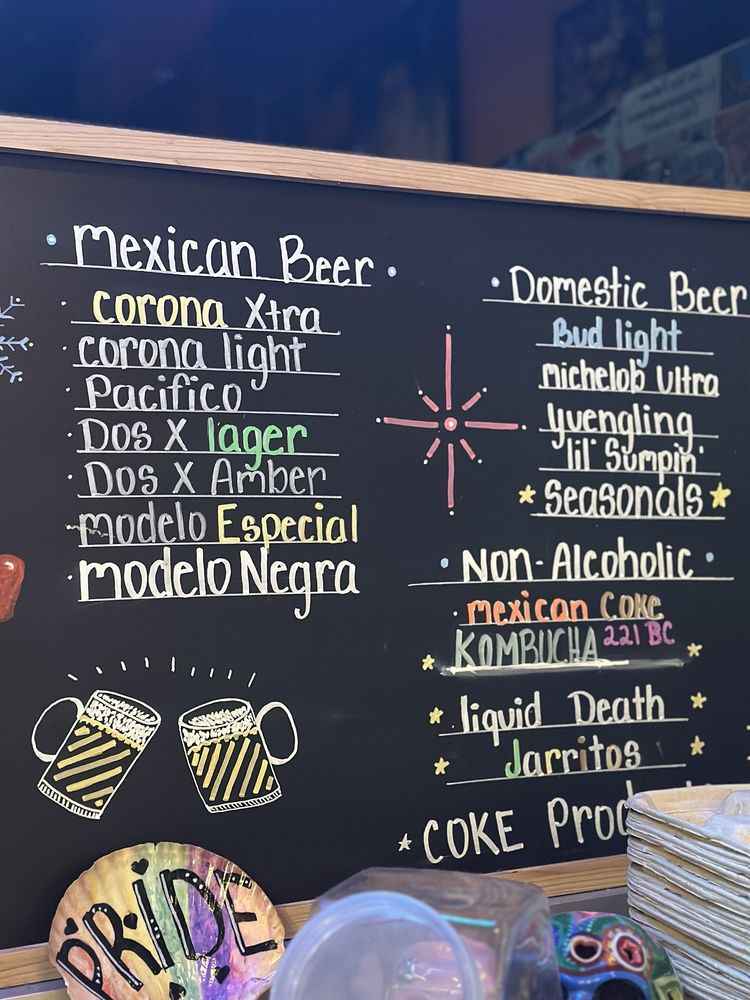 Mexican Beer
corona Xtra
corona light
Pacifico
Dos X lager
Dos X Amber
modelo Especial
modelo Negra
Domestic Beer
Bud light
michelob Ultra
Yuengling
lil' Sumpin'
Seasonals
Non-Alcoholic
mexican Coke
KOMBUCHA 221 BC
liquid Death
Jarritos
COKE Prod
PRIDE